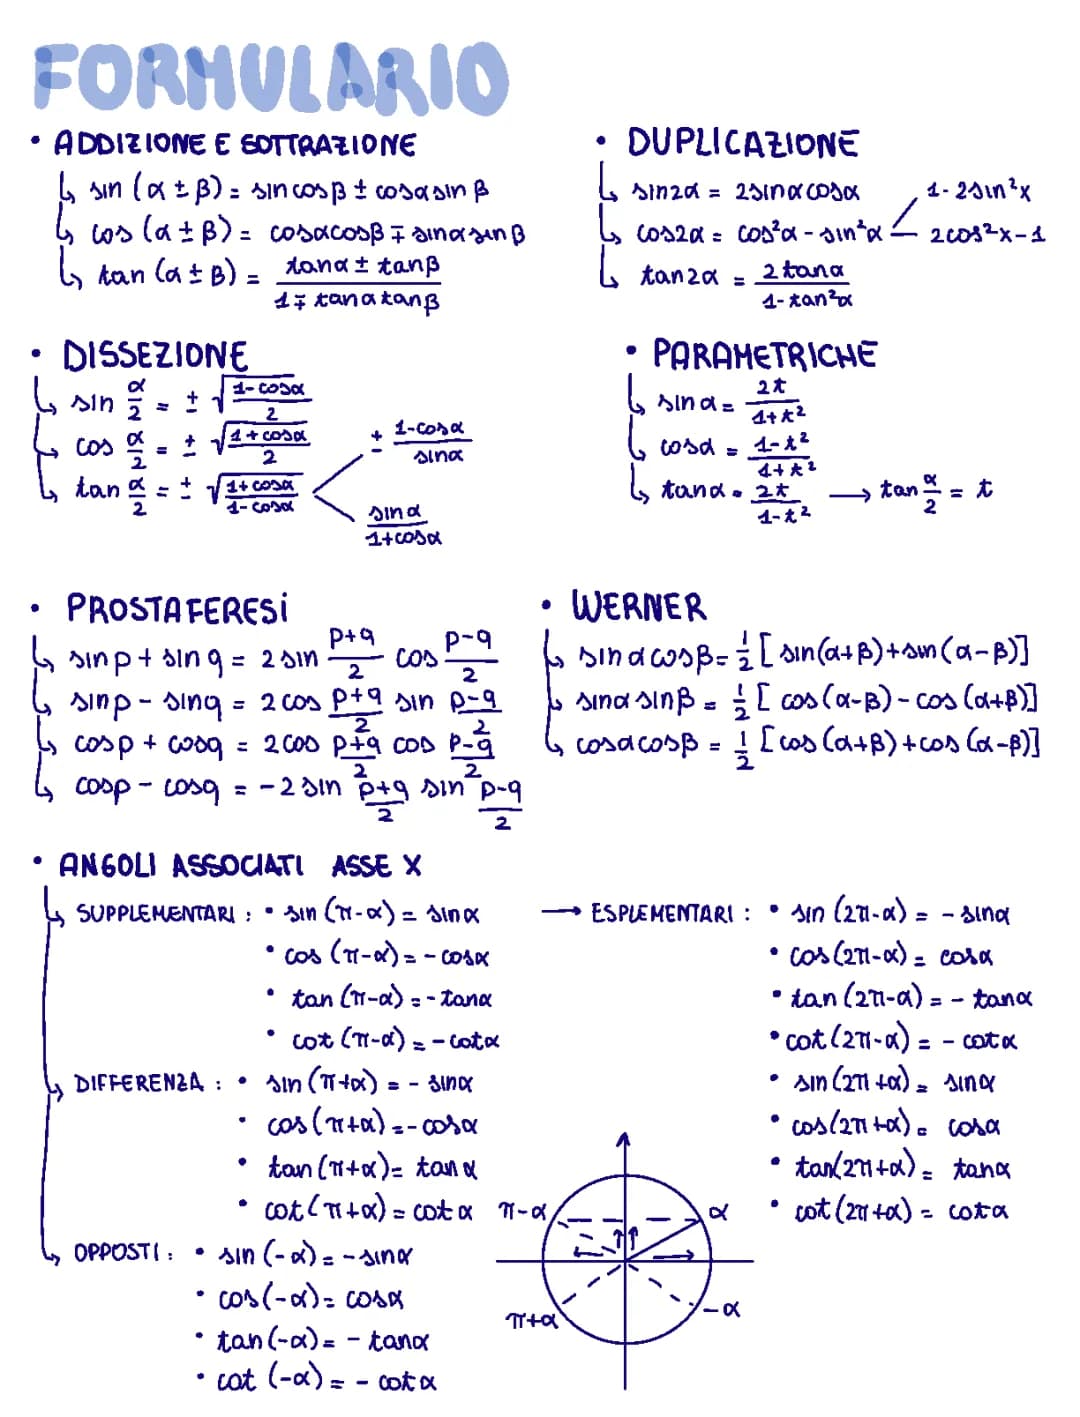 FORMULARIO
• ADDIZIONE E SOTTRAZIONE
↳ sin (α ± β) = sincosβ ± cosαsin β
↳ cos (α ± β) = cosαcosβ ∓ sinαsinβ
↳ tan (α ± β) = (tanα ± tanβ) / (1 ∓ tanαtanβ)
• DUPLICAZIONE
↳ sin2α = 2sinαcosα
↳ cos2α = cos²α - sin²α < 1-2sin²x
2cos²x-1
↳ tan2α = 2tanα / (1-tan²α)
• DISSEZIONE
↳ sin α/2 = ± √((1-cosα)/2)
↳ cos α/2 = ± √((1+cosα)/2)
↳ tan α/2 = ± √((1+cosα)/(1-cosα)) < ± (1-cosα)/sinα
sinα/(1+cosα)
• PARAMETRICHE
↳ sinα = 2t/(1+t²)
↳ cosα = (1-t²)/(1+t²)
↳ tanα = 2t/(1-t²) → tan α/2 = t
• PROSTAFERESI
↳ sinp + sinq = 2 sin (p+q)/2 cos (p-q)/2
↳ sinp - sinq = 2 cos (p+q)/2 sin (p-q)/2
↳ cosp + cosq = 2 cos (p+q)/2 cos (p-q)/2
↳ cosp - cosq = -2 sin (p+q)/2 sin (p-q)/2
• WERNER
↳ sinαcosβ = 1/2 [sin(α+β)+sin(α-β)]
↳ sinαsinβ = 1/2 [cos(α-β)-cos(α+β)]
↳ cosαcosβ = 1/2 [cos(α+β)+cos(α-β)]
• ANGOLI ASSOCIATI ASSE X
↳ SUPPLEMENTARI : • sin (π-α) = sinα
• cos (π-α) = -cosα
• tan (π-α) = -tanα
• cot (π-α) = -cotα
↳ DIFFERENZA : • sin (π+α) = - sinα
• cos (π+α) = -cosα
• tan (π+α) = tanα
• cot (π+α) = cotα
↳ OPPOSTI : • sin (-α) = -sinα
• cos (-α) = cosα
• tan (-α) = - tanα
• cot (-α) = - cotα
→ ESPLEMENTARI : • sin (2π-α) = - sinα
• cos (2π-α) = cosα
• tan (2π-α) = - tanα
• cot (2π-α) = - cotα
• sin (2π+α) = sinα
• cos (2π+α) = cosα
• tan (2π+α) = tanα
• cot (2π+α) = cotα
π-α
α
π+α
-α